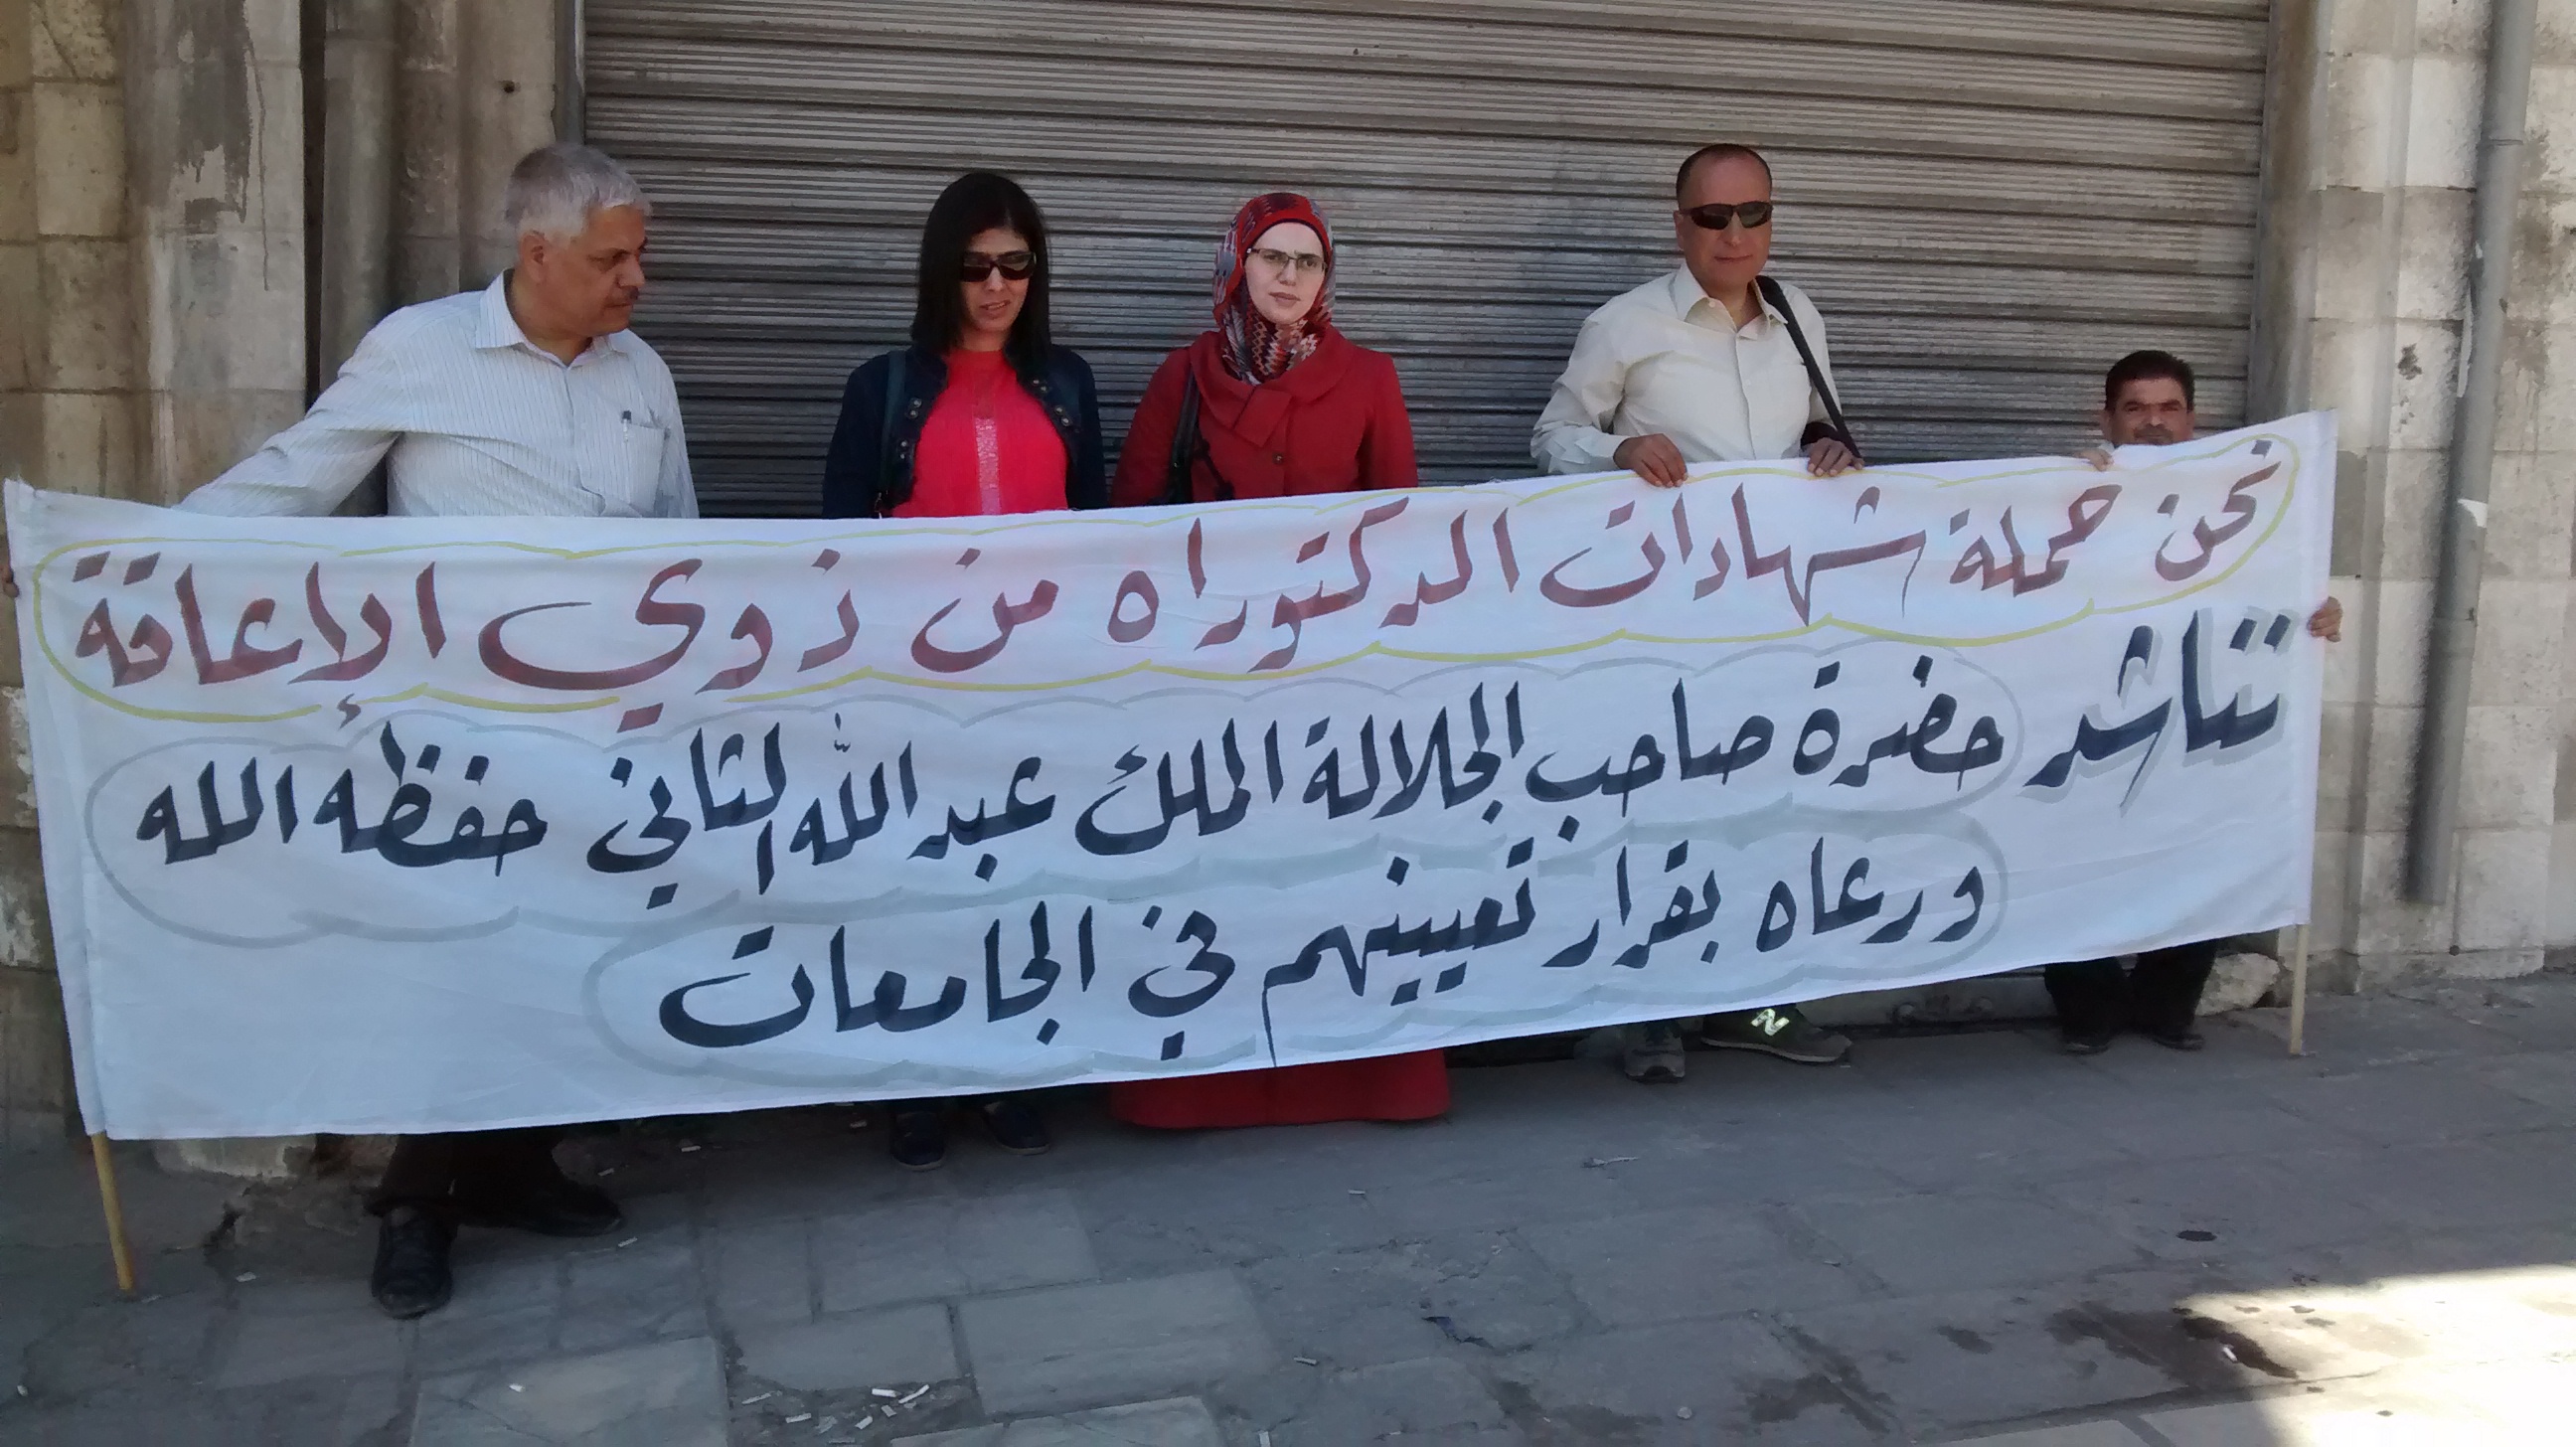 نحن حملة شهادات الدكتوراه من ذوي الإعاقة
نناشد حضرة صاحب الجلالة الملك عبد الله الثاني حفظه الله
ورعاه بقرار تعيينهم في الجامعات
N